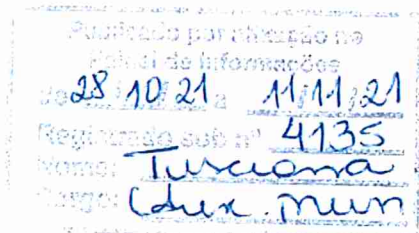 Publicado por afixação no
Painel de Informações
de 28 10 21 a 11/11/21
Registrado sub nº 4135
Nome:
Cargo: Mun